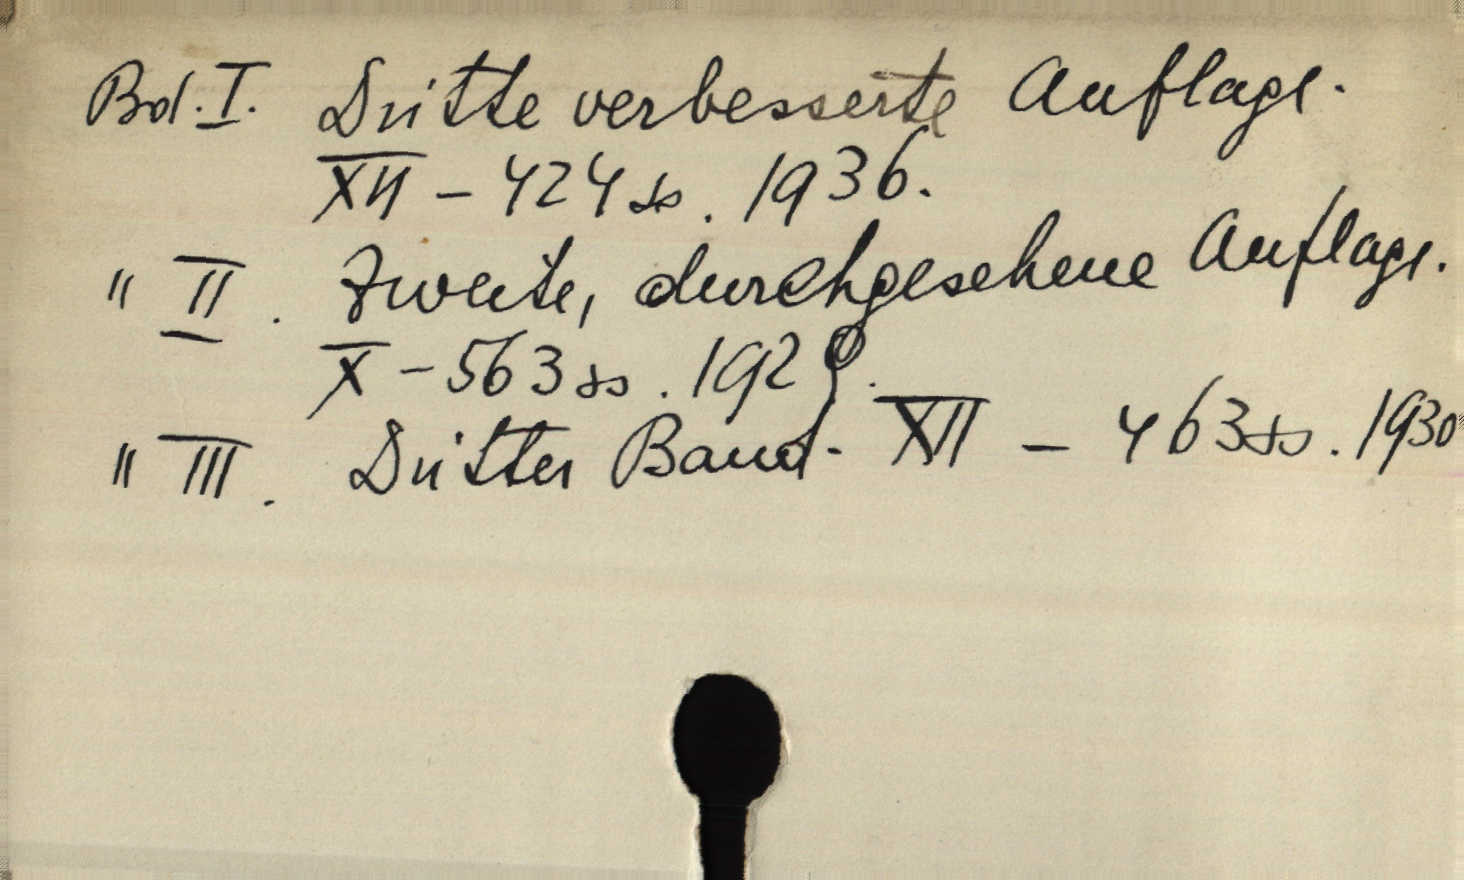 Bd. I. Dritte verbesserte Auflage.
XII – 424 ss. 1936.
" II. Zweite, durchgesehene Auflage.
X – 563 ss. 1929.
" III. Dritter Band. XII – 463 ss. 1930